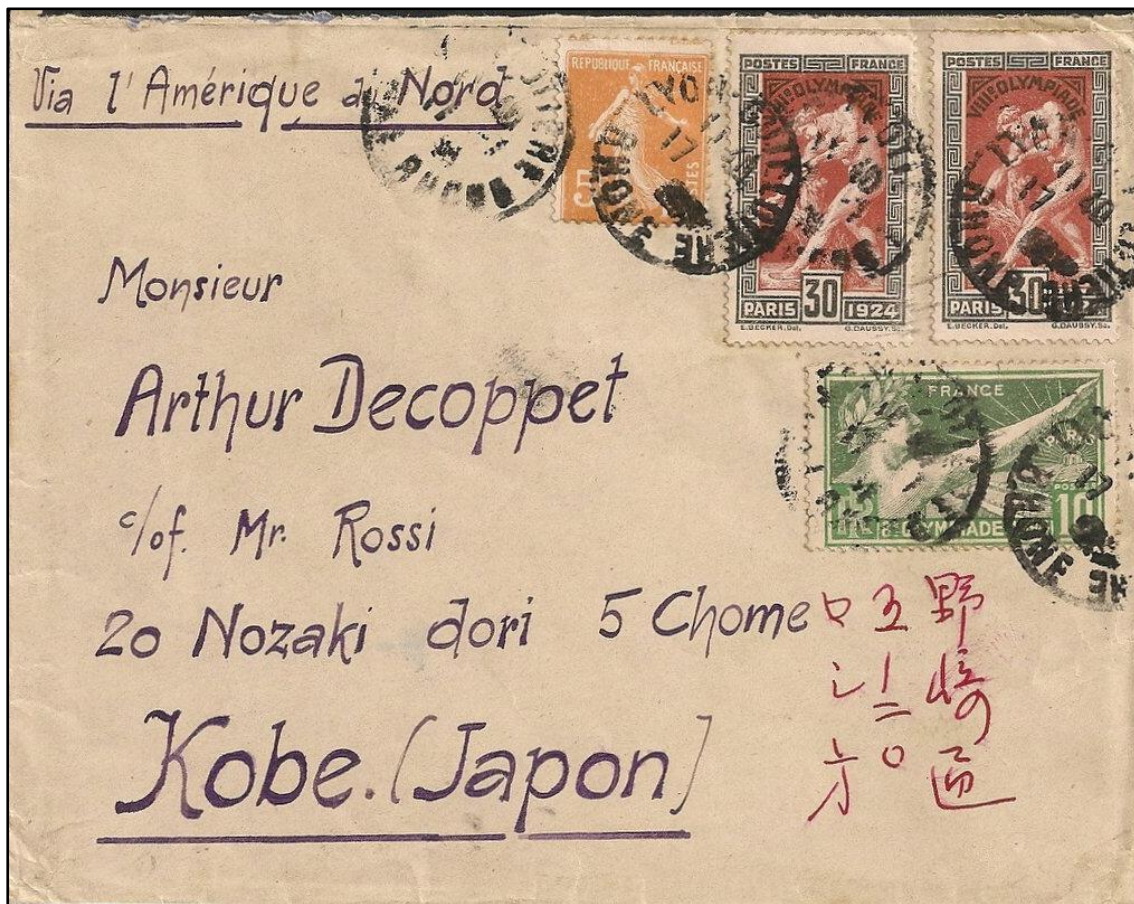 Via l'Amérique du Nord
REPUBLIQUE FRANÇAISE
5
POSTES FRANCE
VIIIe OLYMPIADE
PARIS 30 1924
E.BECKER.Del. G.DAUSSY.Sc.
POSTES FRANCE
VIIIe OLYMPIADE
PARIS 30
E.BECKER.Del. G.DAUSSY.Sc.
FRANCE
PARIS
8e OLYMPIADE 10
Monsieur
Arthur Decoppet
c/of. Mr. Rossi
20 Nozaki dori 5 Chome
Kobe. (Japon)
野崎通
五ノ二〇
ロシ方